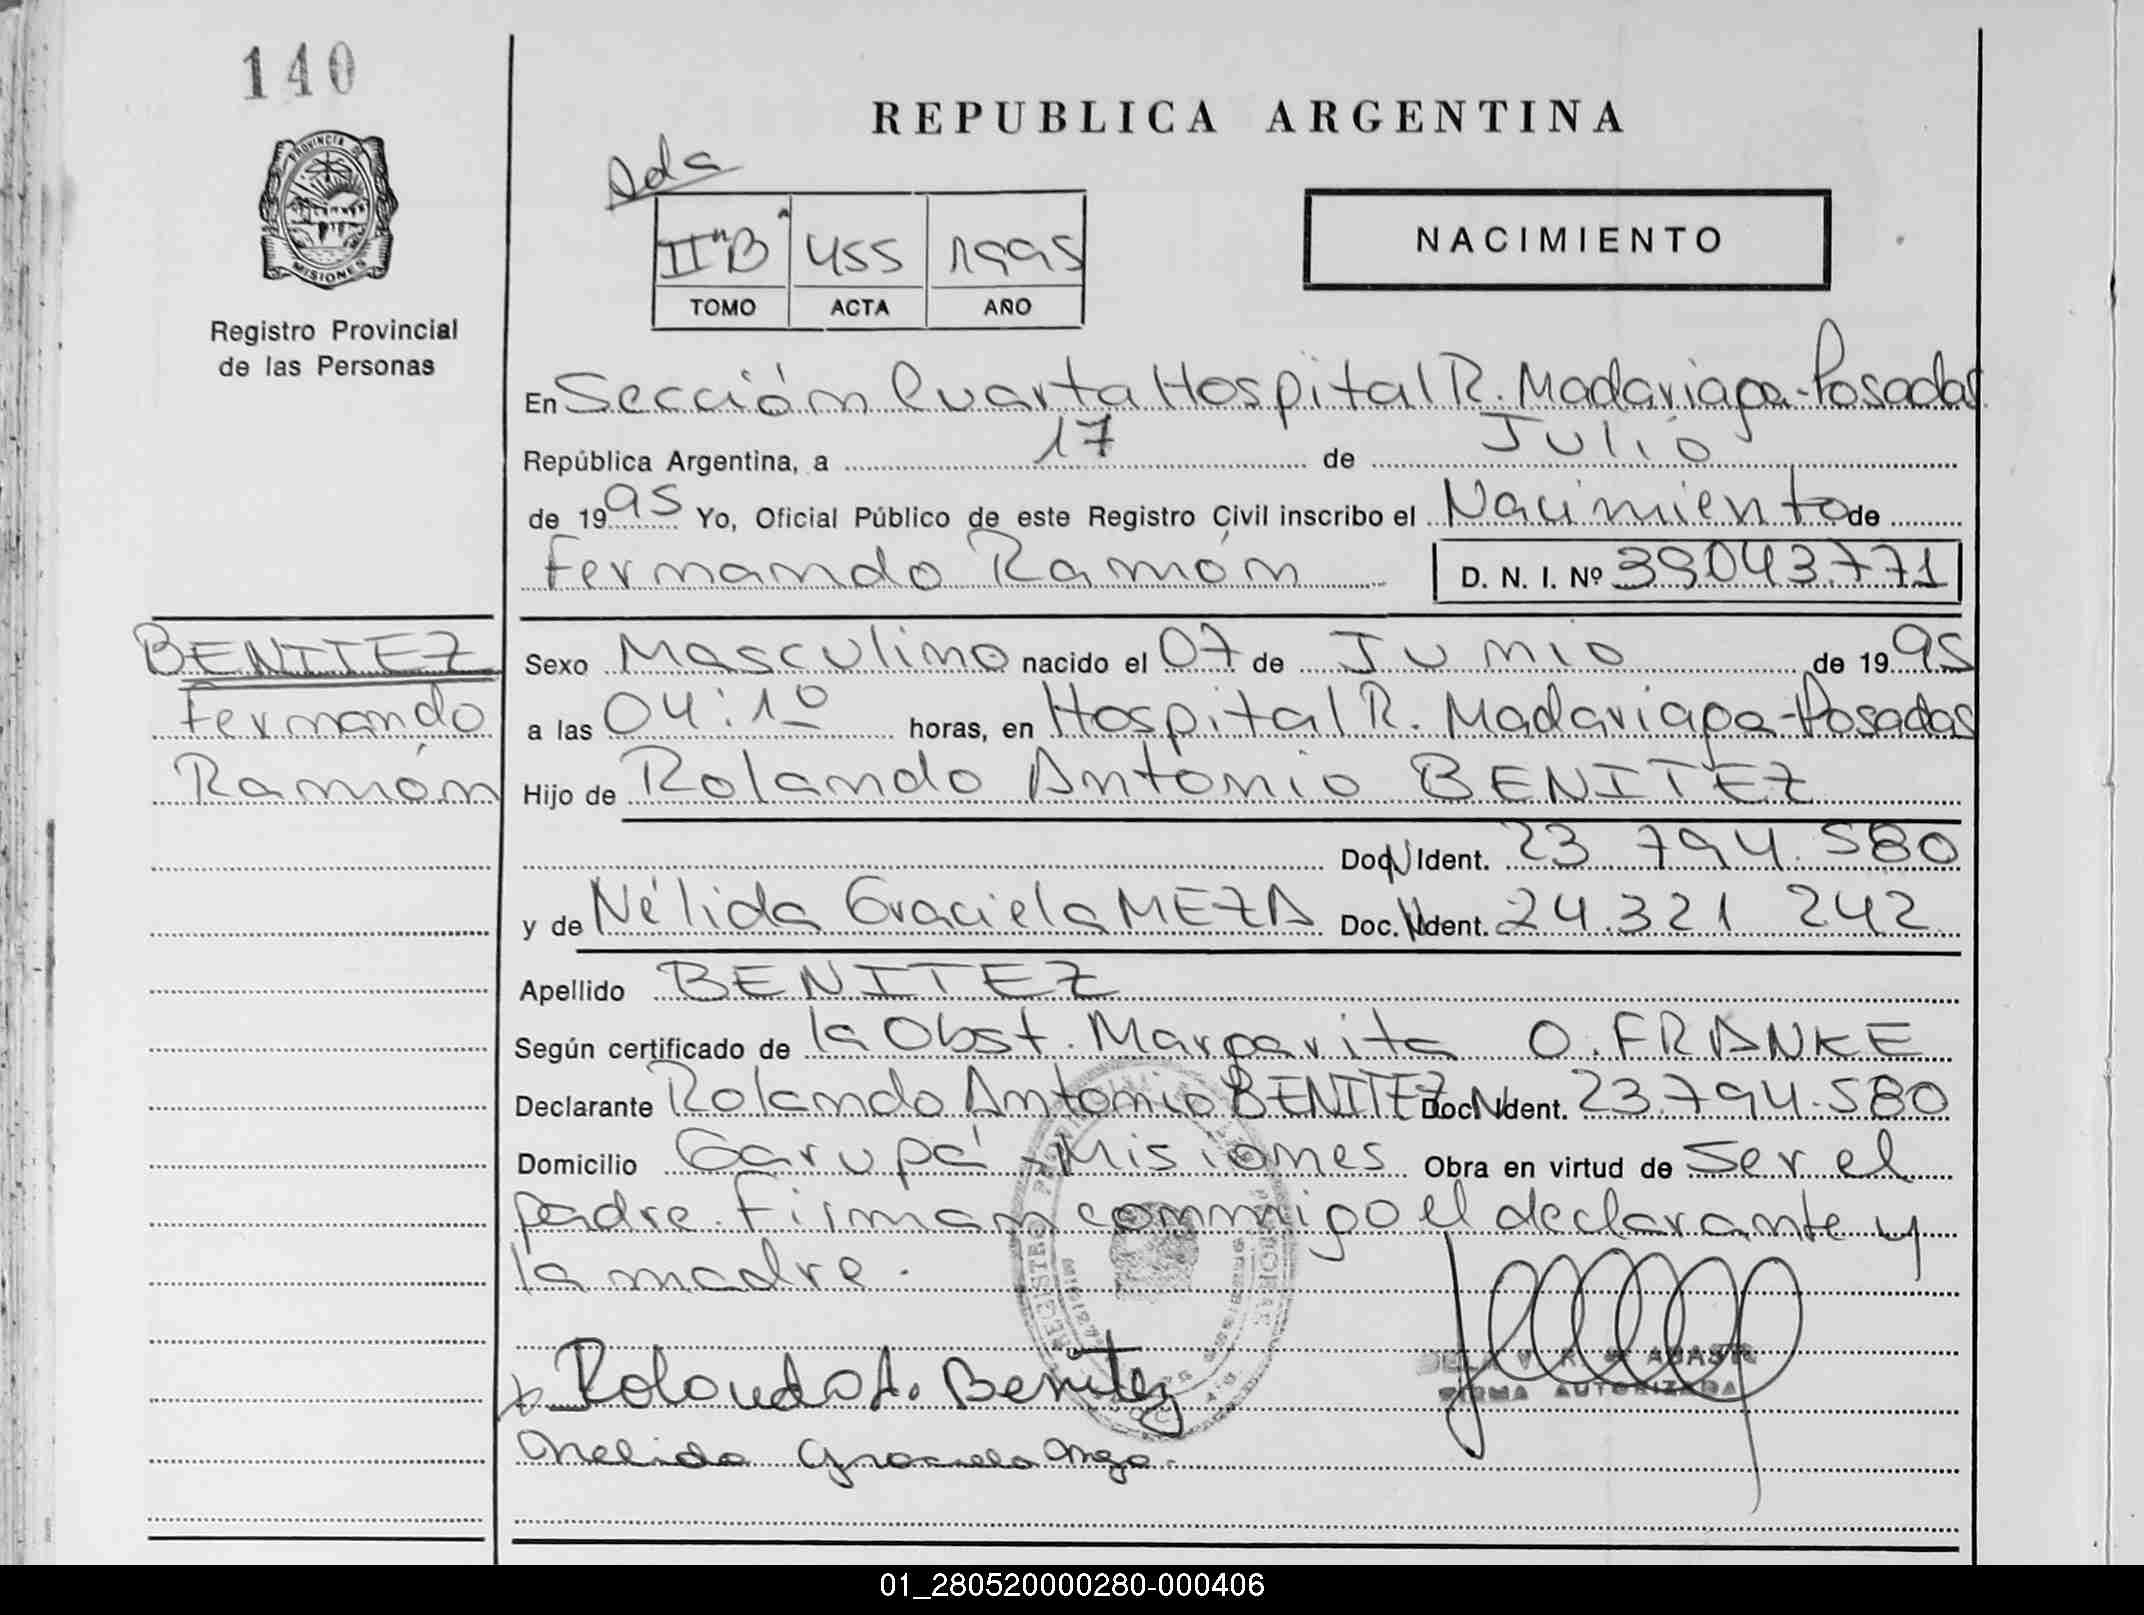 140
REPUBLICA ARGENTINA
PROVINCIA DE
MISIONES
Registro Provincial
de las Personas
NACIMIENTO
IIºB 455 1995
TOMO ACTA AÑO
En Sección Cuarta Hospital R. Madariaga-Posadas
República Argentina, a 17 de Julio
de 1995 Yo, Oficial Público de este Registro Civil inscribo el Nacimiento de
Fernando Ramón D. N. I. Nº 39043771
BENITEZ
Fernando
Ramón
Sexo Masculino nacido el 07 de Junio de 1995
a las 04:10 horas, en Hospital R. Madariaga-Posadas
Hijo de Rolando Antonio BENITEZ
Doc. N Ident. 23 794.580
y de Nélida Graciela MEZA Doc. N Ident. 24.321 242
Apellido BENITEZ
Según certificado de la Obst. Margarita O. FRANKE
Declarante Rolando Antonio BENITEZ Doc. N Ident. 23.794.580
Domicilio Garupá-Misiones Obra en virtud de ser el
padre. Firman conmigo el declarante y
la madre.
Rolando A. Benitez
FIRMA AUTORIZADA
Nelida Graciela Meza
01_280520000280-000406